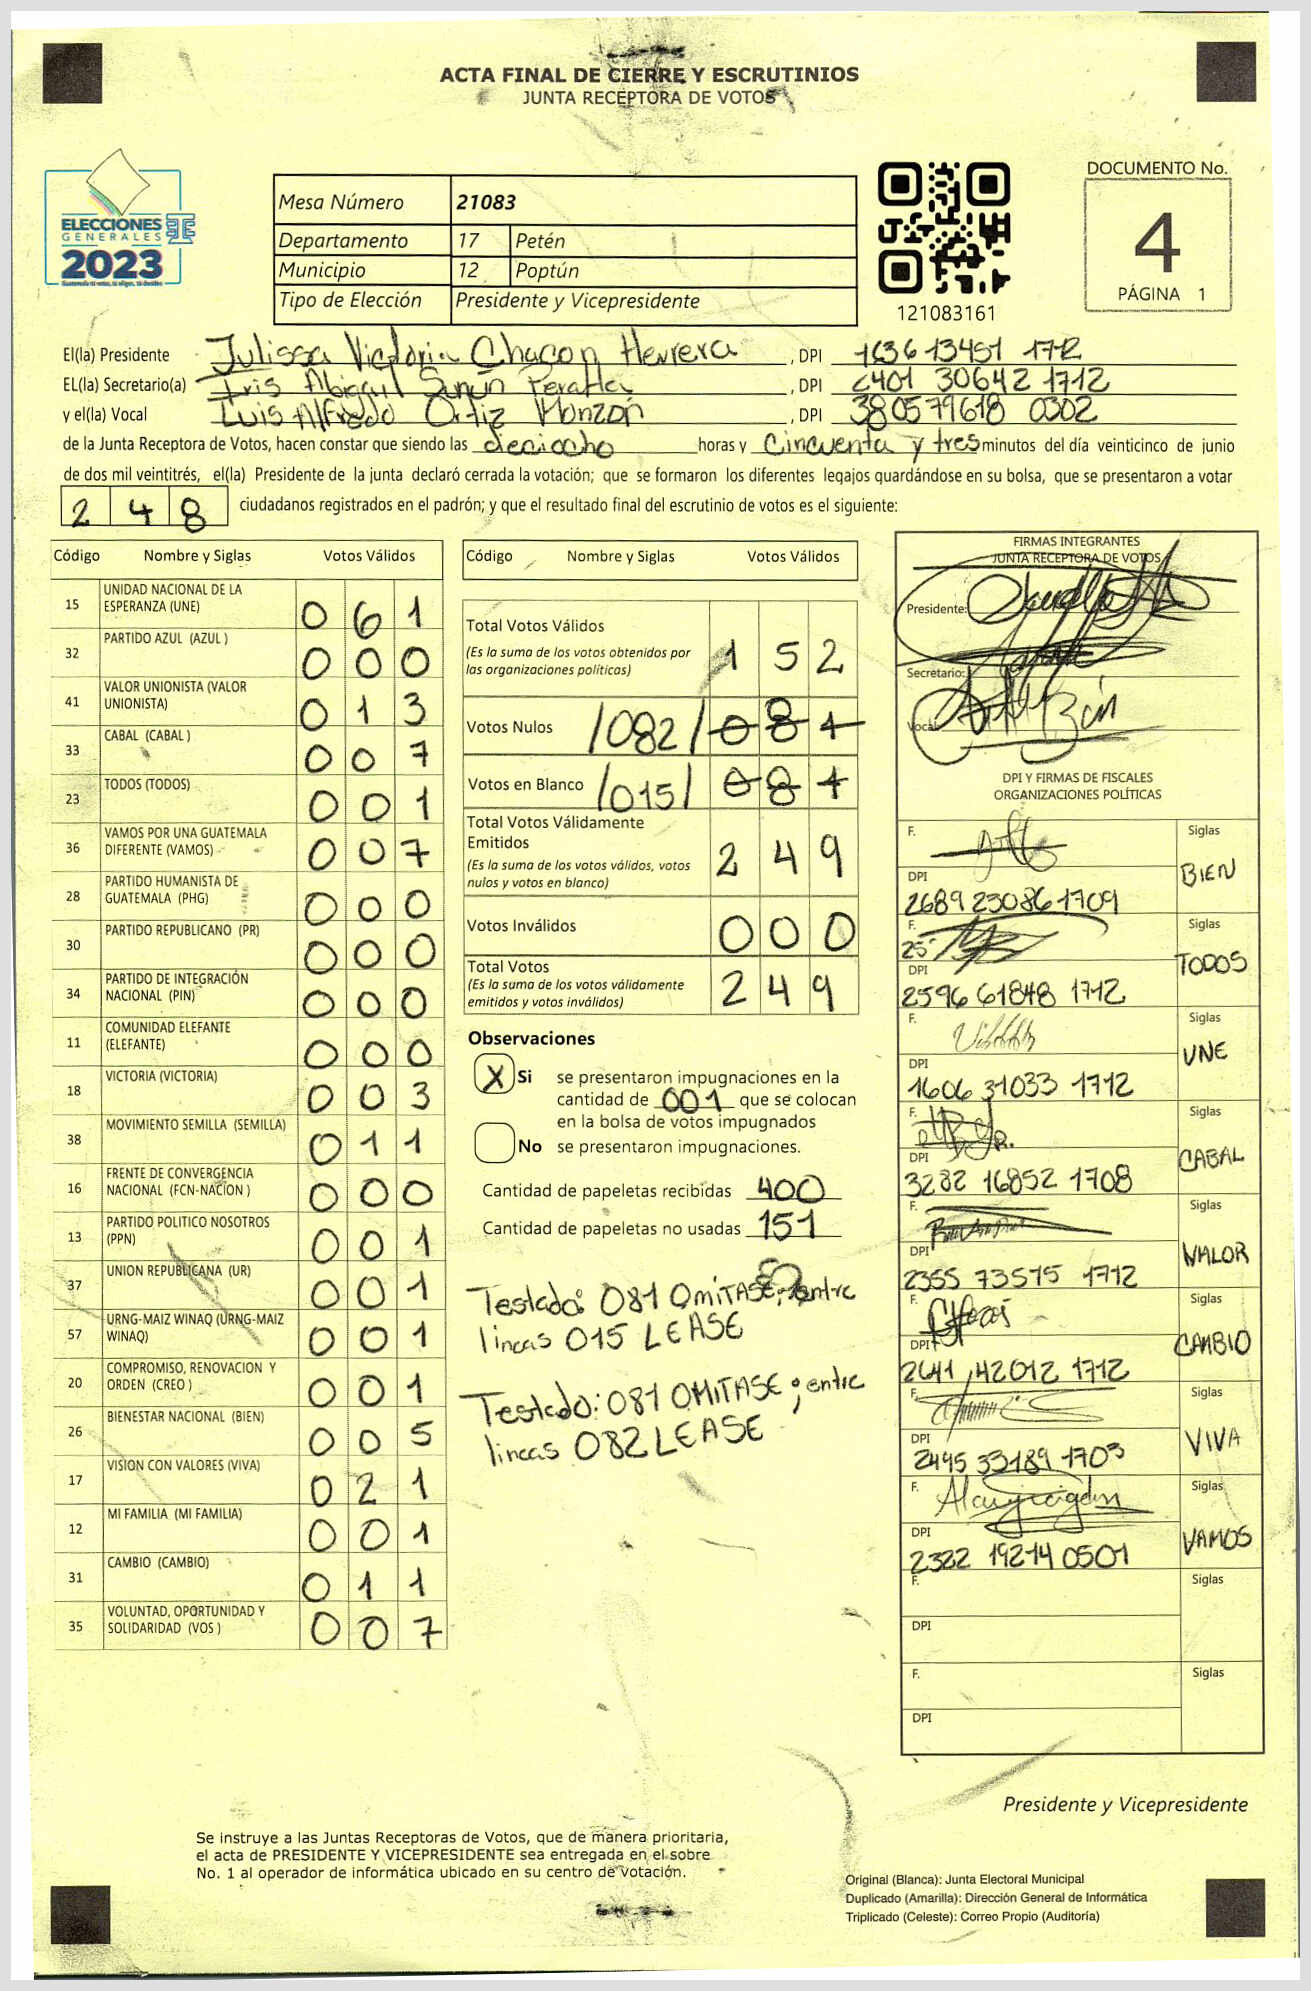 ACTA FINAL DE CIERRE Y ESCRUTINIOS
JUNTA RECEPTORA DE VOTOS
ELECCIONES
GENERALES
2023
Mesa Número 21083
Departamento 17 Petén
Municipio 12 Poptún
Tipo de Elección Presidente y Vicepresidente
121083161
DOCUMENTO No.
4
PÁGINA 1
El(la) Presidente Julissa Victoria Chacon Herrera , DPI 1636 13451 1712
EL(la) Secretario(a) Iris Abigail , DPI 2401 30642 1712
y el(la) Vocal Luis Alfredo Ortiz Monzón , DPI 380579618 0302
de la Junta Receptora de Votos, hacen constar que siendo las dieciocho horas y cincuenta y tres minutos del día veinticinco de junio
de dos mil veintitrés, el(la) Presidente de la junta declaró cerrada la votación; que se formaron los diferentes legajos guardándose en su bolsa, que se presentaron a votar
2 4 8 ciudadanos registrados en el padrón; y que el resultado final del escrutinio de votos es el siguiente:
Código Nombre y Siglas Votos Válidos
15 UNIDAD NACIONAL DE LA
ESPERANZA (UNE) 0 6 1
32 PARTIDO AZUL (AZUL ) 0 0 0
41 VALOR UNIONISTA (VALOR
UNIONISTA) 0 1 3
33 CABAL (CABAL ) 0 0 7
23 TODOS (TODOS) 0 0 1
36 VAMOS POR UNA GUATEMALA
DIFERENTE (VAMOS) 0 0 7
28 PARTIDO HUMANISTA DE
GUATEMALA (PHG) 0 0 0
30 PARTIDO REPUBLICANO (PR) 0 0 0
34 PARTIDO DE INTEGRACIÓN
NACIONAL (PIN) 0 0 0
11 COMUNIDAD ELEFANTE
(ELEFANTE) 0 0 0
18 VICTORIA (VICTORIA) 0 0 3
38 MOVIMIENTO SEMILLA (SEMILLA) 0 1 1
16 FRENTE DE CONVERGENCIA
NACIONAL (FCN-NACION ) 0 0 0
13 PARTIDO POLITICO NOSOTROS
(PPN) 0 0 1
37 UNION REPUBLICANA (UR) 0 0 1
57 URNG-MAIZ WINAQ (URNG-MAIZ
WINAQ) 0 0 1
20 COMPROMISO, RENOVACION Y
ORDEN (CREO ) 0 0 1
26 BIENESTAR NACIONAL (BIEN) 0 0 5
17 VISION CON VALORES (VIVA) 0 2 1
12 MI FAMILIA (MI FAMILIA) 0 0 1
31 CAMBIO (CAMBIO) 0 1 1
35 VOLUNTAD, OPORTUNIDAD Y
SOLIDARIDAD (VOS ) 0 0 7
Código Nombre y Siglas Votos Válidos
Total Votos Válidos
(Es la suma de los votos obtenidos por
las organizaciones políticas) 1 5 2
Votos Nulos /082/ 0 8 1
Votos en Blanco /015/ 0 8 1
Total Votos Válidamente
Emitidos
(Es la suma de los votos válidos, votos
nulos y votos en blanco) 2 4 9
Votos Inválidos 0 0 0
Total Votos
(Es la suma de los votos válidamente
emitidos y votos inválidos) 2 4 9
Observaciones
X Si se presentaron impugnaciones en la
cantidad de 001 que se colocan
en la bolsa de votos impugnados
No se presentaron impugnaciones.
Cantidad de papeletas recibidas 400
Cantidad de papeletas no usadas 151
Testado: 081 OMITASE; entre
lineas 015 LEASE
Testado: 081 OMITASE; entre
lineas 082 LEASE
FIRMAS INTEGRANTES
JUNTA RECEPTORA DE VOTOS
Presidente:
Secretario:
Vocal
DPI Y FIRMAS DE FISCALES
ORGANIZACIONES POLÍTICAS
F. Siglas
DPI BIEN
2689 23086 1709
F. Siglas
DPI TODOS
2596 61848 1712
F. Siglas
DPI UNE
1606 31033 1712
F. Siglas
DPI CABAL
3282 16852 1708
F. Siglas
DPI VALOR
2355 73575 1712
F. Siglas
DPI CAMBIO
2641 42012 1712
F. Siglas
DPI VIVA
2495 33189 1703
F. Siglas
DPI VAMOS
2322 19214 0501
F. Siglas
DPI
F. Siglas
DPI
Presidente y Vicepresidente
Se instruye a las Juntas Receptoras de Votos, que de manera prioritaria,
el acta de PRESIDENTE Y VICEPRESIDENTE sea entregada en el sobre
No. 1 al operador de informática ubicado en su centro de votación.
Original (Blanca): Junta Electoral Municipal
Duplicado (Amarilla): Dirección General de Informática
Triplicado (Celeste): Correo Propio (Auditoría)